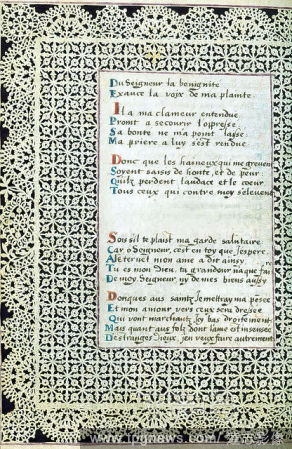 Du Seigneur la benignite
Exauce la voix de ma plainte.
Il a ma clameur entendue
Promt a secourir l'opresse.
Sa bonte ne ma point laisse
Ma priere a luy s'est rendue
Donc que les haineux qui me greuent
Soyent saisis de honte, et de peur
Quilz perdent laudace et le coeur
Tous ceux qui contre moy seleuent
Sois sil te plaist ma garde salutaire
Car o Seigneur, cest en toy que jespere
A leternel mon ame a dit ainsy
Tu es mon Dieu, ta grandeur na que faire
De moy Seigneur, ny de mes biens aussy
Donques aus saintz je mettray ma pesee
Et mon amour vers ceux sera dressee
Qui vont marchantz
Mais quant aus folz dont lame est insensee
Destranges Dieux, jen veux faire autrement
www.tpgnews.com/